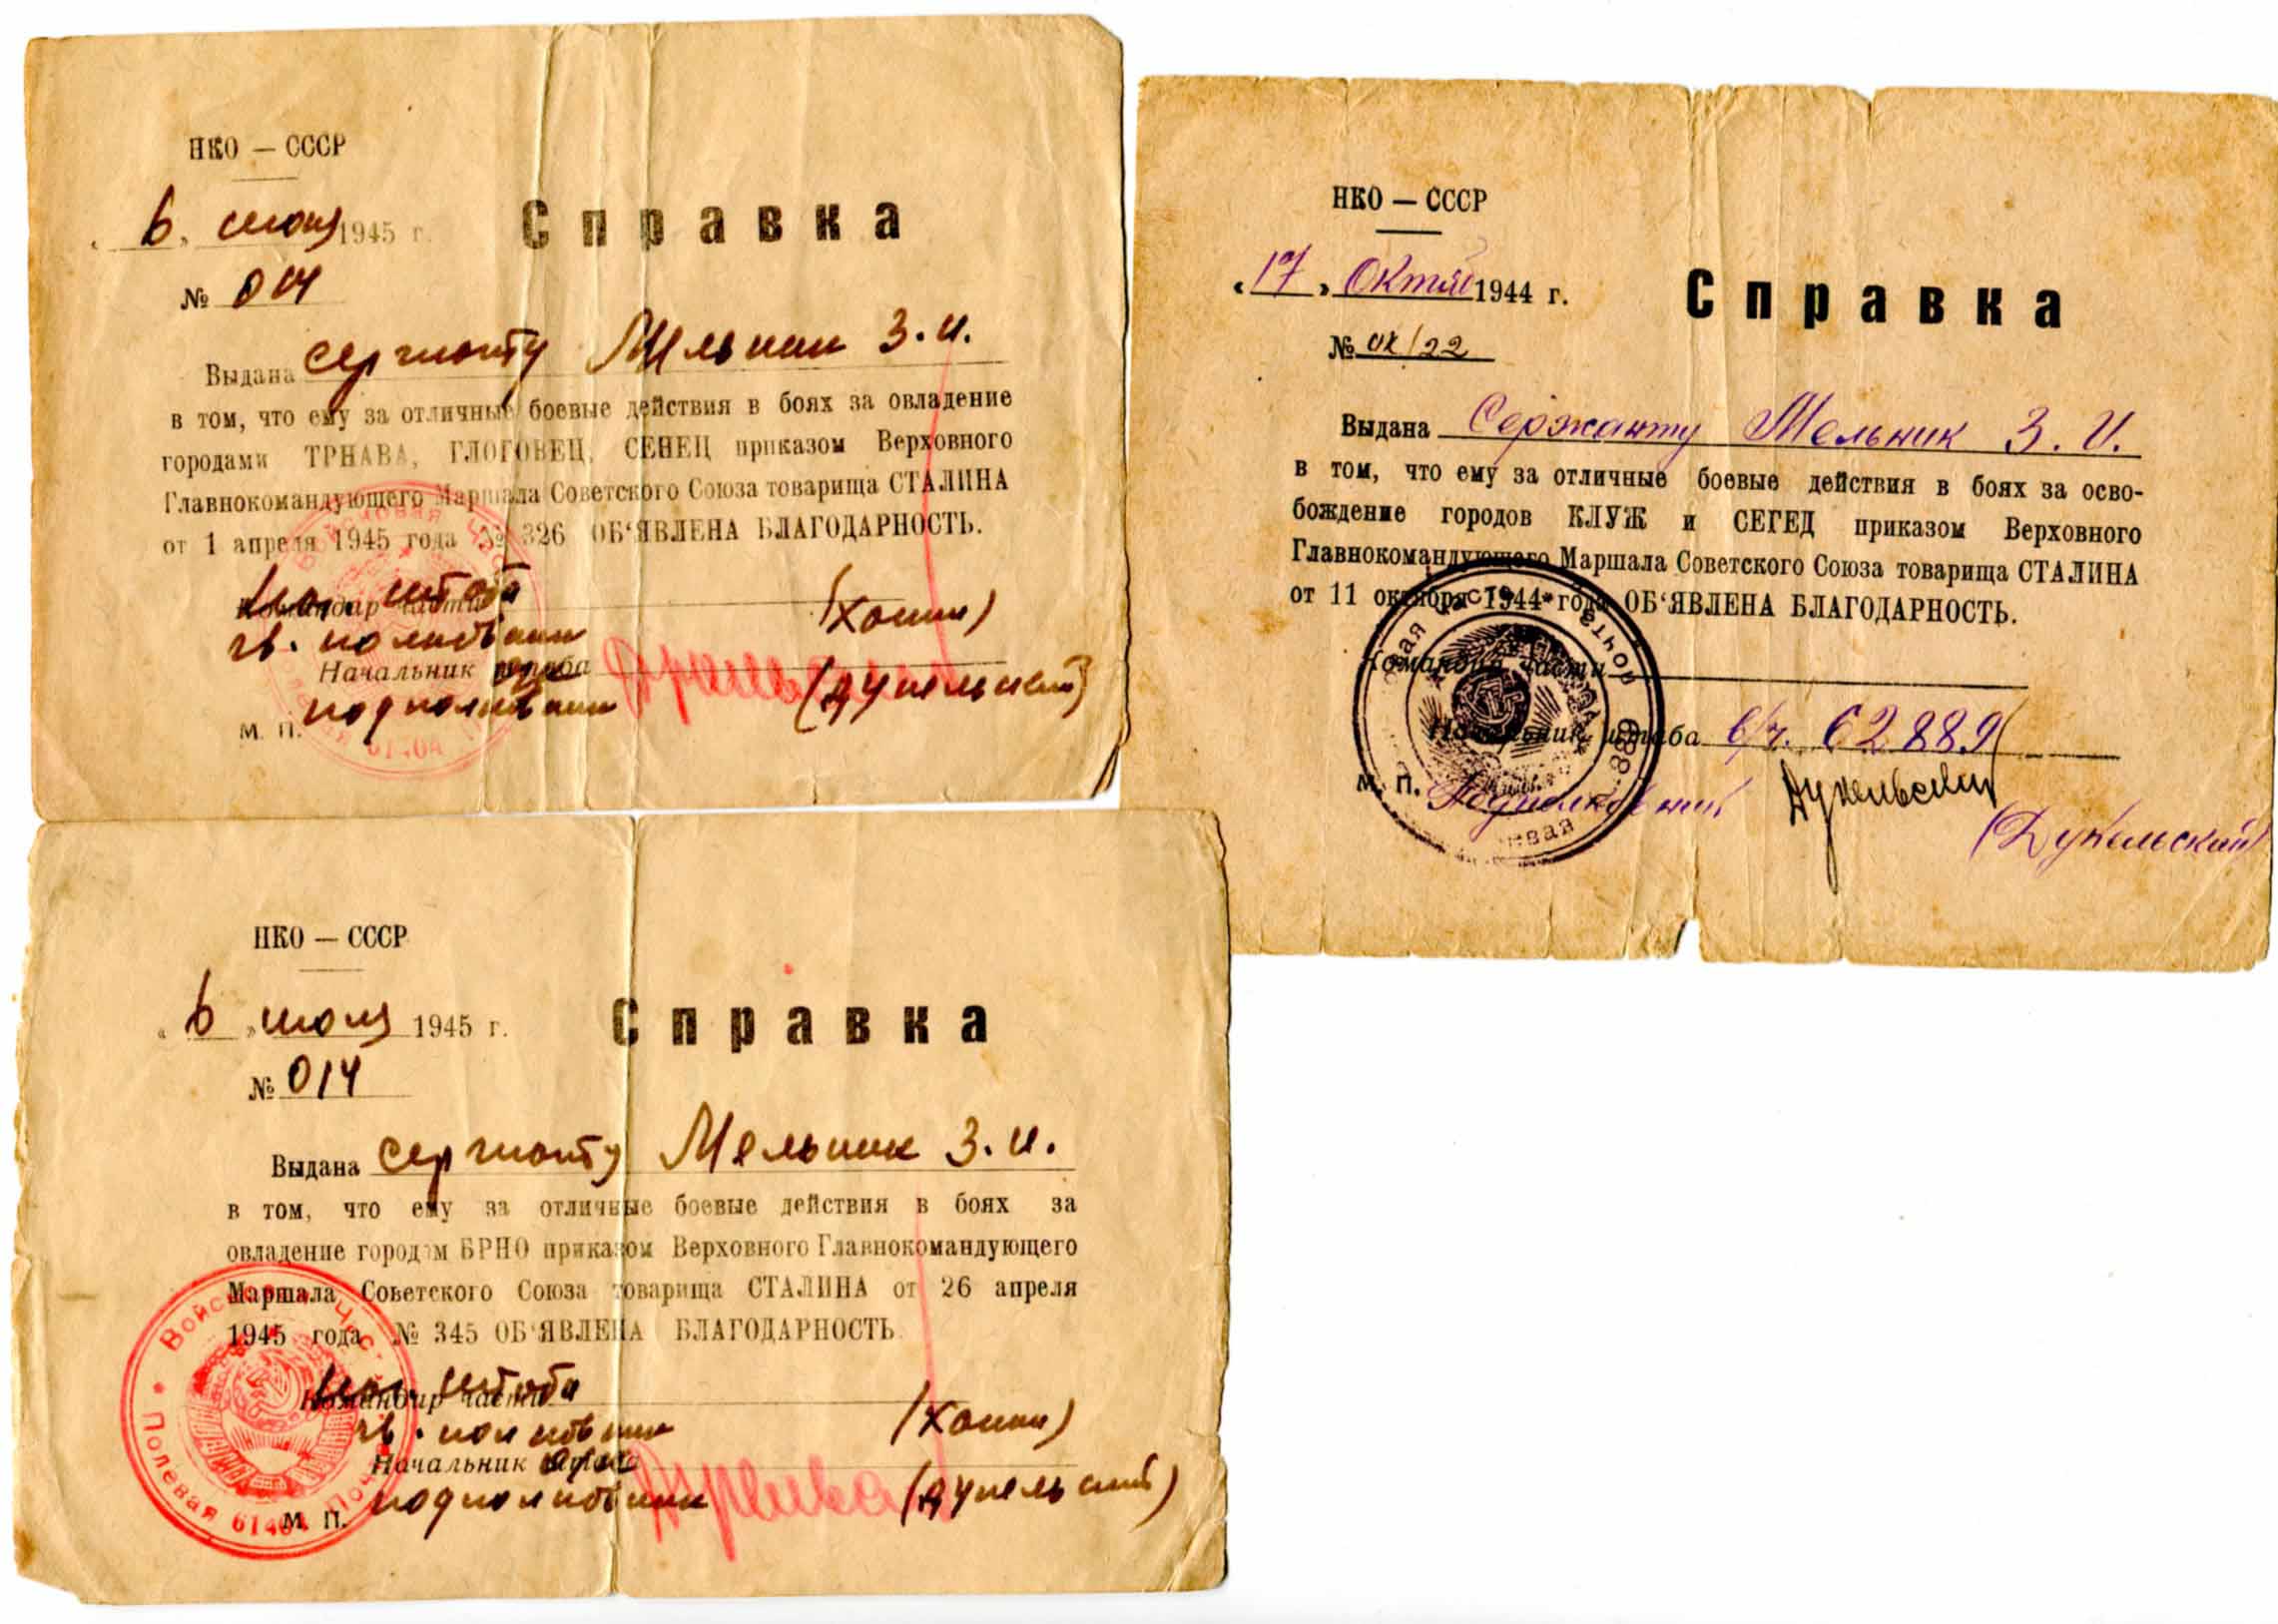 НКО — СССР
« 6 » июля 1945 г.
Справка
№ 014
Выдана сержанту Мельник З. И.
в том, что ему за отличные боевые действия в боях за овладение
городами ТРНАВА, ГЛОГОВЕЦ, СЕНЕЦ приказом Верховного
Главнокомандующего Маршала Советского Союза товарища СТАЛИНА
от 1 апреля 1945 года № 326 ОБ‘ЯВЛЕНА БЛАГОДАРНОСТЬ.
Нач. штаба
Командир части
гв. полковник
Начальник
подполковник (Дукельский)
М. П.
НКО — СССР
« 17 » Октяб 1944 г.
Справка
№ 04/22
Выдана Сержанту Мельник З. И.
в том, что ему за отличные боевые действия в боях за осво-
бождение городов КЛУЖ и СЕГЕД приказом Верховного
Главнокомандующего Маршала Советского Союза товарища СТАЛИНА
от 11 октября 1944 года ОБ‘ЯВЛЕНА БЛАГОДАРНОСТЬ.
Командир части
Начальник штаба в/ч. 62889
М. П. Подполковник Дукельский
(Дукельский)
НКО — СССР
« 6 » июля 1945 г.
Справка
№ 014
Выдана сержанту Мельник З. И.
в том, что ему за отличные боевые действия в боях за
овладение городом БРНО приказом Верховного Главнокомандующего
Маршала Советского Союза товарища СТАЛИНА от 26 апреля
1945 года № 345 ОБ‘ЯВЛЕНА БЛАГОДАРНОСТЬ
Нач. штаба
Командир части
гв. полковник
Начальник
подполковник (Дукельский)
М. П.
Войсковая часть
Полевая Почта